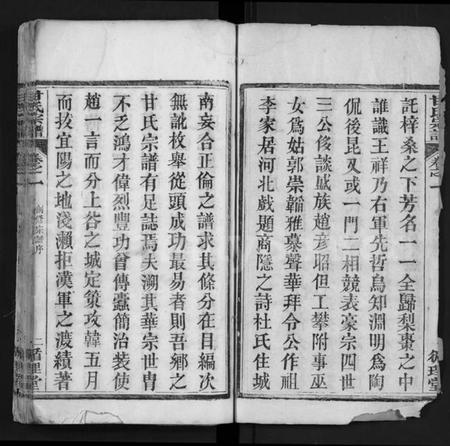 託梓桑之下芳名一一全歸梨棗之中
誰識王祥乃右軍先哲烏知淵明爲陶
侃後昆又或一門二相競表豪宗四世
三公侈談盛族趙彥昭但工攀附事巫
女爲姑郭崇韜雅慕聲華拜令公作祖
李家居河北戲題商隱之詩杜氏住城
南妄合正倫之譜求其條分在目編次
無訛枚舉從頭成功最易者則吾鄉之
甘氏宗譜有足誌焉夫溯其華宗世冑
不乏鴻才偉烈豐功曾傳蠹簡治裝使
趙一言而分上谷之城定策攻韓五月
而拔宜陽之地淺瀨拒漢軍之渡績著
甘氏宗譜
卷之一
二
循理堂